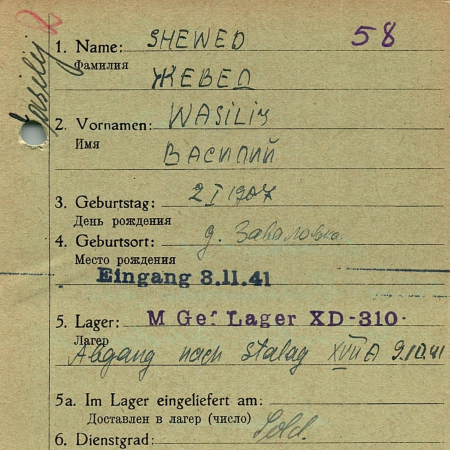 Wasilij 2
1. Name: SHEWED 58
Фамилия
ЖЕВЕД
2. Vornamen: WASILIY
Имя
ВАСИЛИЙ
3. Geburtstag: 2 I 1907
День рождения
4. Geburtsort: д. Заваловка
Место рождения
Eingang 3.11.41
5. Lager: M Gef Lager XD-310-
Лагерь
Abgang nach Stalag XVII A 9.10.41
5a. Im Lager eingeliefert am:
Доставлен в лагерь (число)
6. Dienstgrad: Sold.